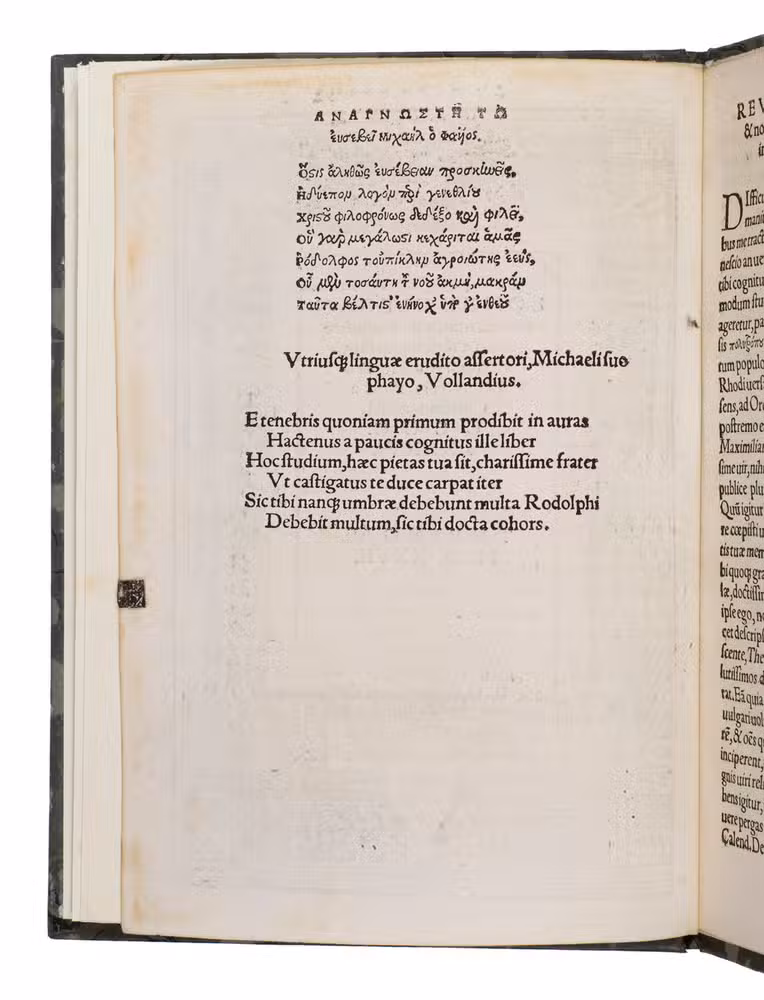 ΑΝΑΓΝΩΣΤΗ ΤΩ
ἐυσεβεῖ μιχαὴλ ὁ φαῖος.
Ὅστις ἀληθῶς ἐυσέβειαν προσκυνεῖς,
Ηδύεπον λογον περὶ γενεθλίου
χριστοῦ φιλοφρόνως δέδεξο καὶ φιλεῖ,
Οὐ γαρ μεγάλωστι κεχάριται ἁμᾶς
Ρόδολφος τοὐπίκλην ἀγροιώτης
Οὗ μὲν τοσάυτη νοῦ ἀκμὴ, μακρὰν
ταῦτα βέλτιστ'
Vtriusq; linguæ erudito assertori, Michaeli suo
phayo, Vollandius.
E tenebris quoniam primum prodibit in auras
Hactenus a paucis cognitus ille liber
Hoc studium, hæc pietas tua sit, charissime frater
Vt castigatus te duce carpat iter
Sic tibi nanq; umbræ debebunt multa Rodolphi
Debebit multum, sic tibi docta cohors.
REV
&no
in
Diffic
manu
bus me tract
nescio an ue
tibi cognitu
modum stu
ageretur, pa
sis
tum populo
Rhodi uers
sens, ad Or
postremo e
Maximilian
sime uir, nih
publice plu
Quū igitur
re cœpisti u
tis tuæ mem
bi quoq; gra
læ, doctissim
ipse ego, n
cet descrips
scente, The
lutissimos d
tat. Eā quia
uulgari uol
rē, & oēs q
inciperent,
gnis uiri reli
bens igitur,
uere pergas
Calend. De